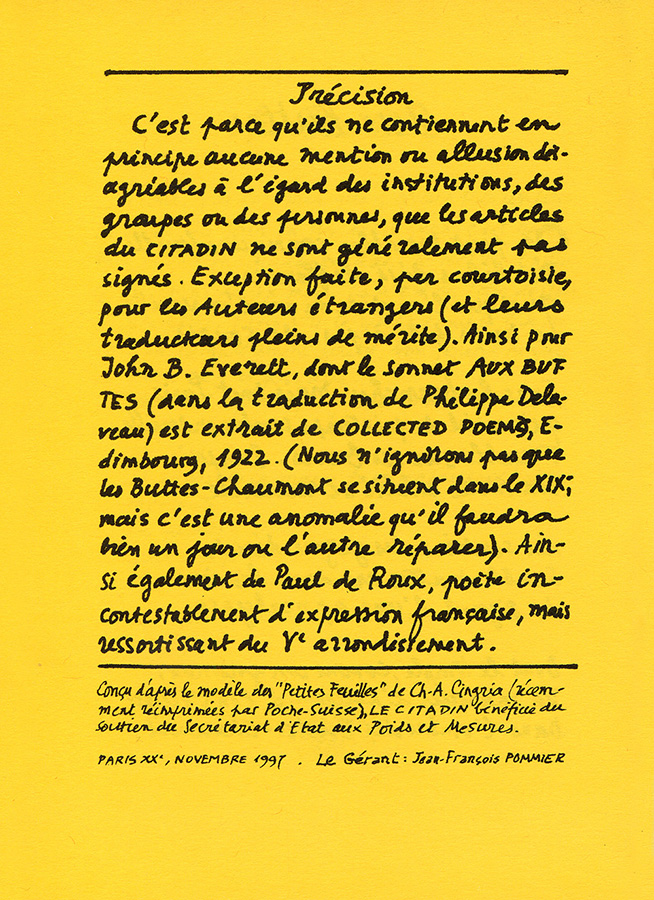 Précision
C'est parce qu'ils ne contiennent en
principe aucune mention ou allusion dés-
agréables à l'égard des institutions, des
groupes ou des personnes, que les articles
du CITADIN ne sont généralement pas
signés. Exception faite, par courtoisie,
pour les Auteurs étrangers (et leurs
traducteurs pleins de mérite). Ainsi pour
John B. Everett, dont le sonnet AUX BUT
TES (dans la traduction de Philippe Dela-
veau) est extrait de COLLECTED POEMS, E-
dimbourg, 1922. (Nous n'ignorons pas que
les Buttes-Chaumont se situent dans le XIXe;
mais c'est une anomalie qu'il faudra
bien un jour ou l'autre réparer). Ain-
si également de Paul de Roux, poète in-
contestablement d'expression française, mais
ressortissant du Ve arrondissement.
Conçu d'après le modèle des "Petites Feuilles" de Ch-A. Cingria (récem-
ment réimprimées par Poche-Suisse), LE CITADIN bénéficie du
soutien du Secrétariat d'Etat aux Poids et Mesures.
PARIS XXe, NOVEMBRE 1997 . Le Gérant: Jean-François POMMIER